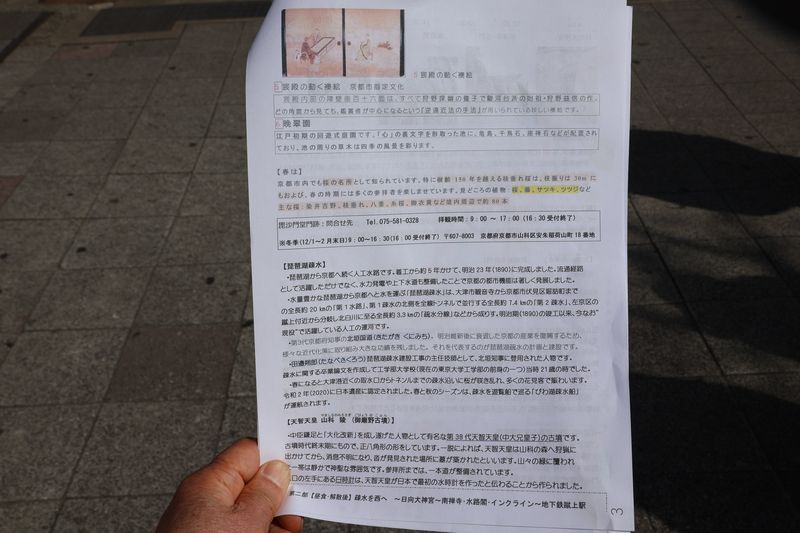 5 宸殿の動く襖絵
5 宸殿の動く襖絵 京都市指定文化
宸殿内部の障壁画百十六面は、すべて狩野探幽の養子で駿河台派の始祖・狩野益信の作。
どの角度から見ても、鑑賞者が中心になるという「逆遠近法の手法」が用いられている珍しい襖絵です。
6 晩翠園
江戸初期の回遊式庭園です。「心」の裏文字を形取った池に、亀島、千鳥石、座禅石などが配置され
ており、池の周りの草木は四季の風景を彩ります。
【春は】
京都市内でも桜の名所として知られています。特に樹齢150年を越える枝垂れ桜は、枝振りは30mに
もおよび、春の時期には多くの参拝者を楽しませています。見どころの植物:桜、藤、サツキ、ツツジなど
主な桜:染井吉野、枝垂れ、八重、糸桜、御衣黄など境内周辺で約80本
毘沙門堂門跡:問合せ先 Tel.075-581-0328 拝観時間:9:00 ~ 17:00(16:30受付終了)
※冬季(12/1~2月末日)9:00~16:30(16:00受付終了) 〒607-8003 京都府京都市山科区安朱稲荷山町18番地
【琵琶湖疎水】
・琵琶湖から京都へ続く人工水路です。着工から約5年かけて、明治23年(1890)に完成しました。流通経路
として活躍しただけでなく、水力発電や上下水道も整備したことで京都の都市機能は著しく発展しました。
・水量豊かな琵琶湖から京都へと水を運ぶ「琵琶湖疎水」は、大津市観音寺から京都市伏見区堀詰町まで
の全長約20kmの「第1水路」、第1疎水の北側を全線トンネルで並行する全長約7.4kmの「第2疎水」、左京区の
蹴上付近から分岐し北白川に至る全長約3.3kmの「疏水分線」などから成ります。明治期(1890)の竣工以来、今なお"
現役"で活躍している人工の運河です。
・第3代京都府知事の北垣国道(きたがき くにみち)、明治維新後に衰退した京都の産業を復興するため、
様々な近代化策に取り組み大きな功績を残しました。それを代表するのが琵琶湖疏水の計画と建設です。
・田邊朔郎(たなべさくろう)琵琶湖疎水建設工事の主任技師として、北垣知事に登用された人物です。
疎水に関する卒業論文を作成して工学部大学校(現在の東京大学工学部の前身の一つ)当時21歳の時でした。
・春になると大津港近くの取水口からトンネルまでの疎水沿いに桜が咲き乱れ、多くの花見客で賑わいます。
令和2年(2020)に日本遺産に認定されました。春と秋のシーズンは、疎水を遊覧船で巡る「びわ湖疎水船」
が運航されます。
【天智天皇 山科 陵 (御廟野古墳)】
・中臣鎌足と「大化改新」を成し遂げた人物として有名な第38代天智天皇(中大兄皇子)の古墳です。
古墳時代終末期にもので、正八角形の形をしています。一説によれば、天智天皇は山科の森へ狩猟に
出かけてから、消息不明になり、沓が発見された場所に墓が築かれたといいます。山々の緑に覆われ
一帯は静かで神聖な雰囲気です。参拝所までは、一本道が整備されています。
口の左手にある日時計は、天智天皇が日本で最初の水時計を作ったと伝わることから作られました。
第二部【昼食・解散後】疎水を西へ ~日向大神宮~南禅寺・水路閣・インクライン~地下鉄蹴上駅
3